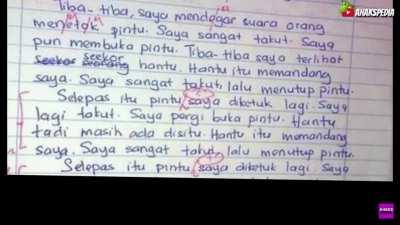 ANAKSPEDIA
Tiba-tiba, saya mendegar suara orang
menetok pintu. Saya sangat takut. Saya
pun membuka pintu. Tiba-tiba saya terlihat
seekor
seekor seorang hantu. Hantu itu memandang
saya. Saya sangat takut, lalu menutup pintu.
Selepas itu pintu saya diketuk lagi. Saya
lagi takut. Saya pergi buka pintu. Hantu
tadi masih ada disitu. Hantu itu memandang
saya. Saya sangat takut, lalu menutup pintu.
Selepas itu pintu saya diketuk lagi. Saya